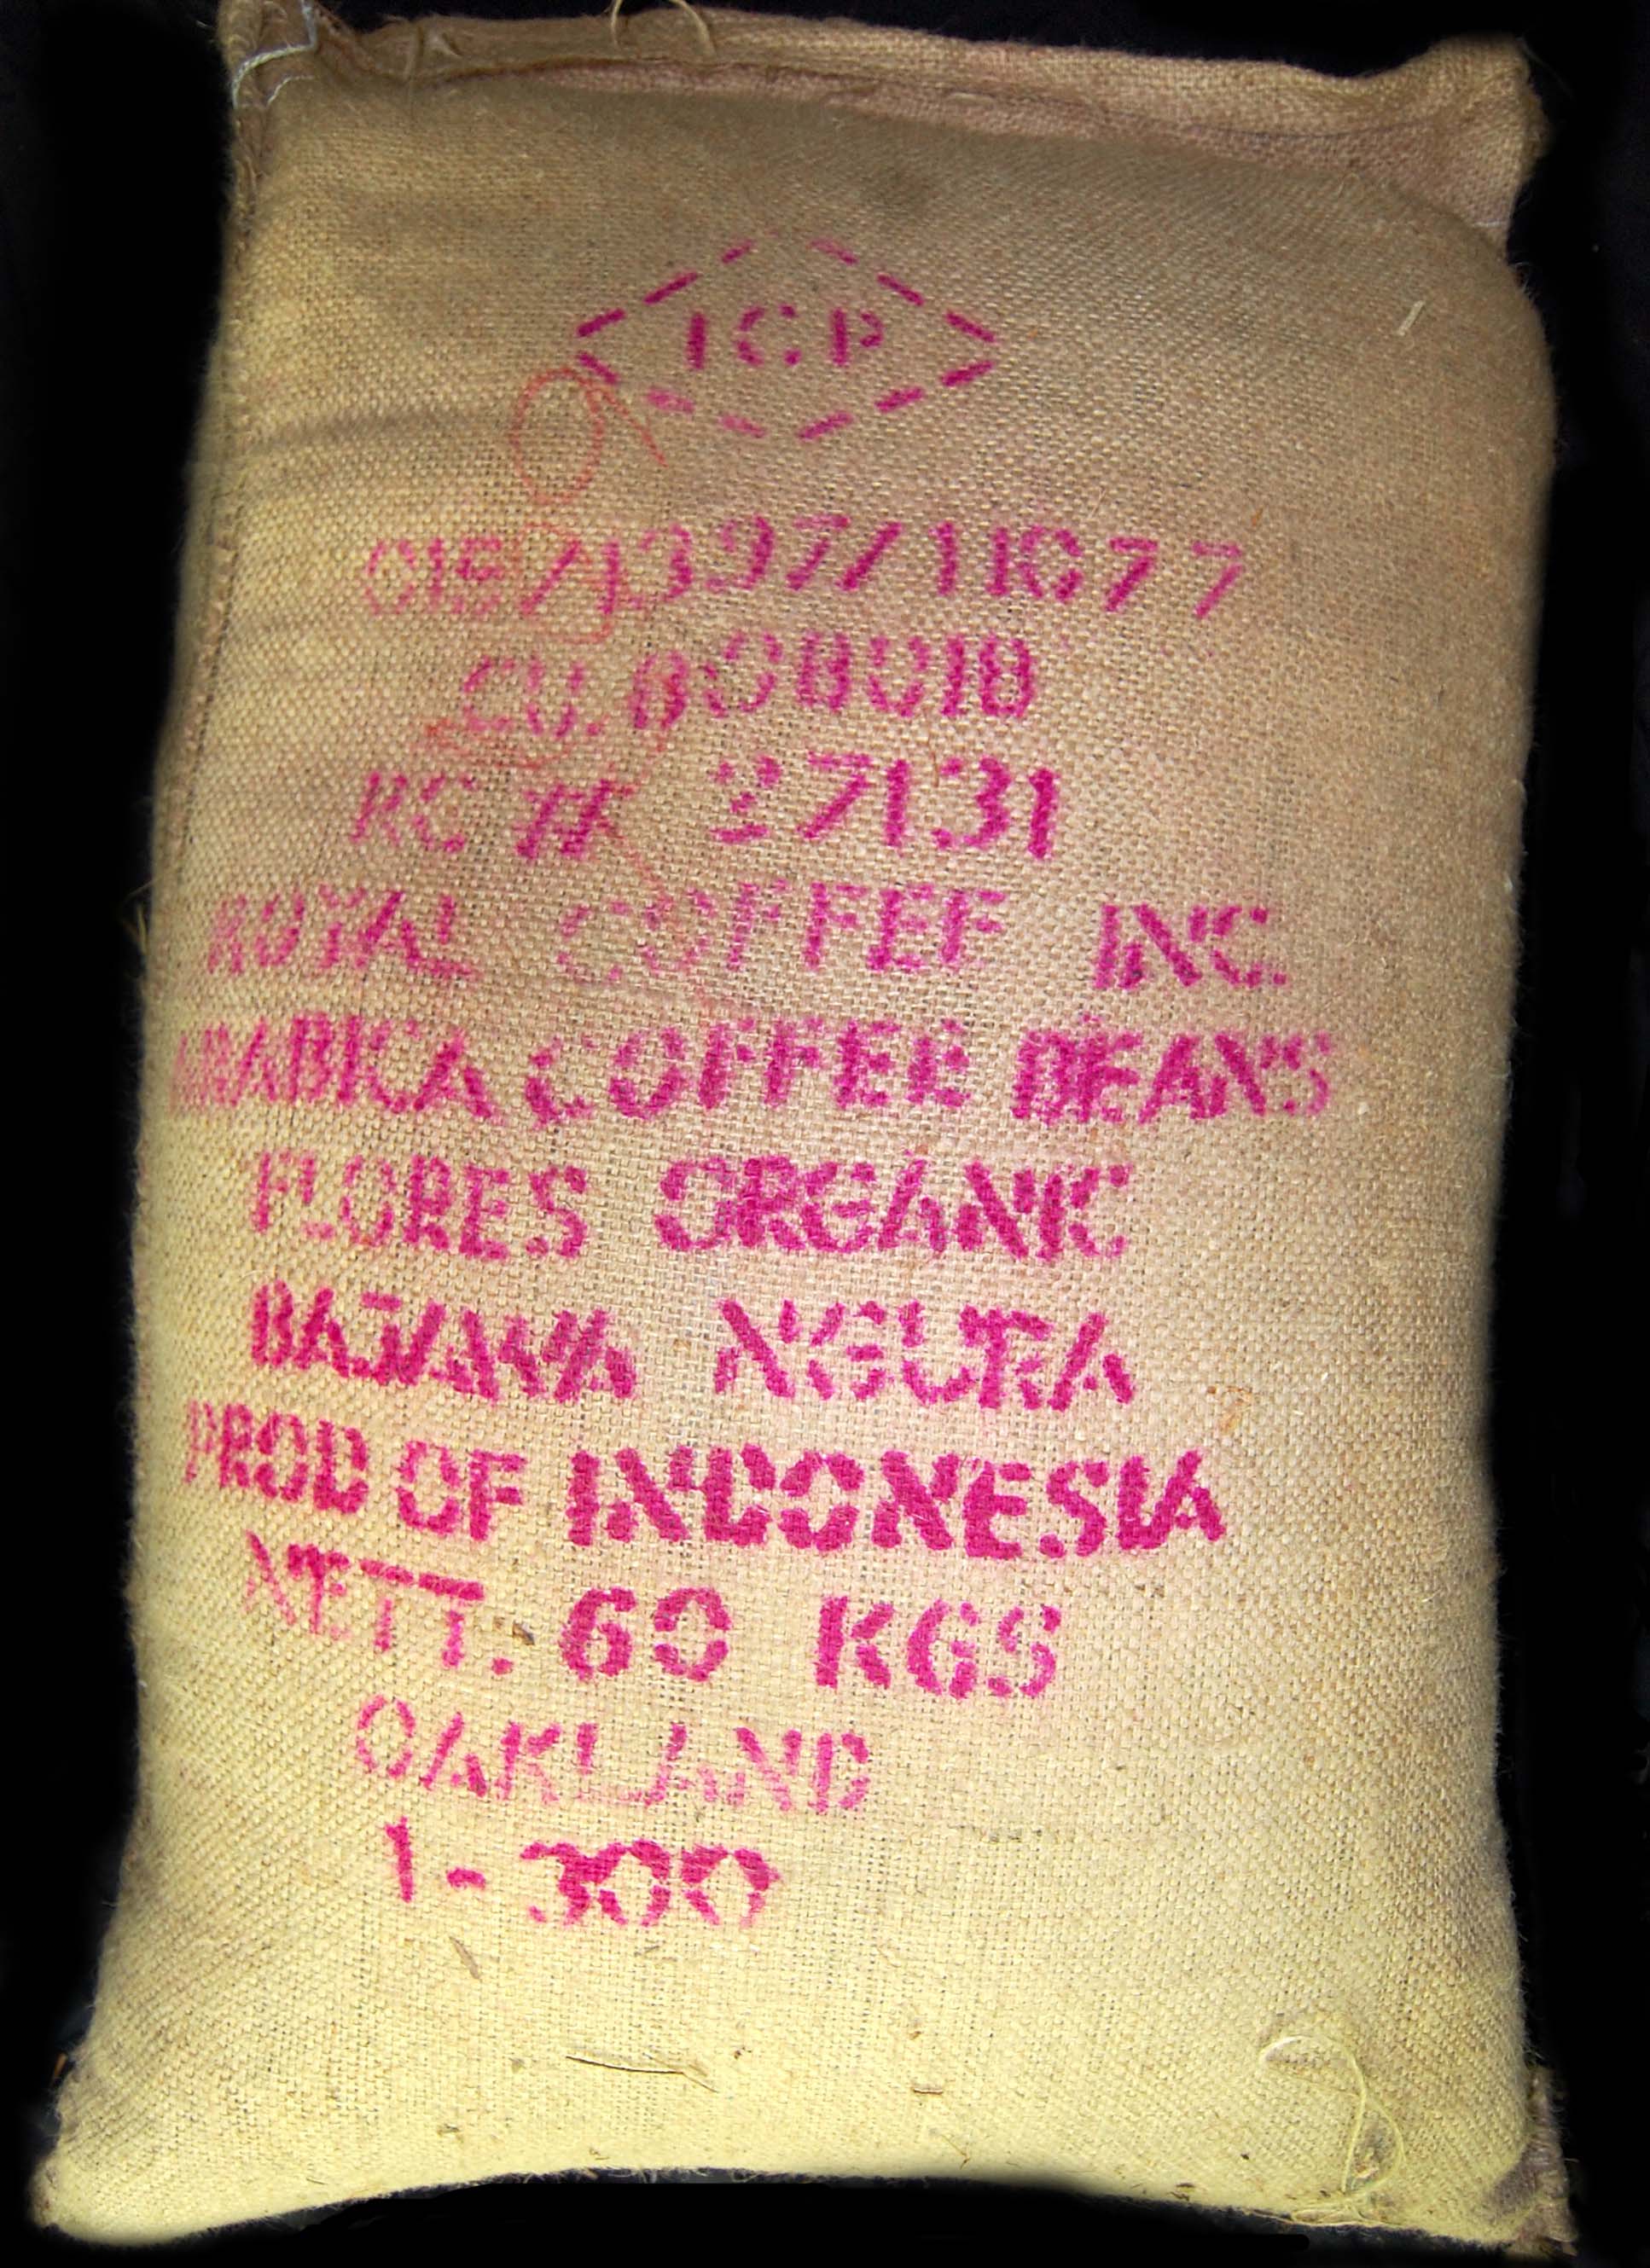 ICP
015/1397/11677
CU. 808018
RC # 27131
ROYAL COFFEE INC.
ARABICA COFFEE BEANS
FLORES ORGANIC
BAJAWA NGURA
PROD OF INDONESIA
NETT. 60 KGS
OAKLAND
1-300